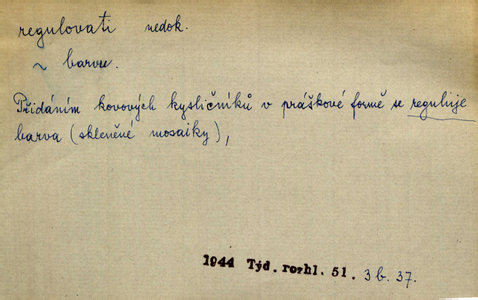 regulovati nedok.
~ barvu.
Přidáním kovových kysličníků v práškové formě se reguluje
barva (skleněné mosaiky),
1944 Týd. rozhl. 51. 3b. 37.